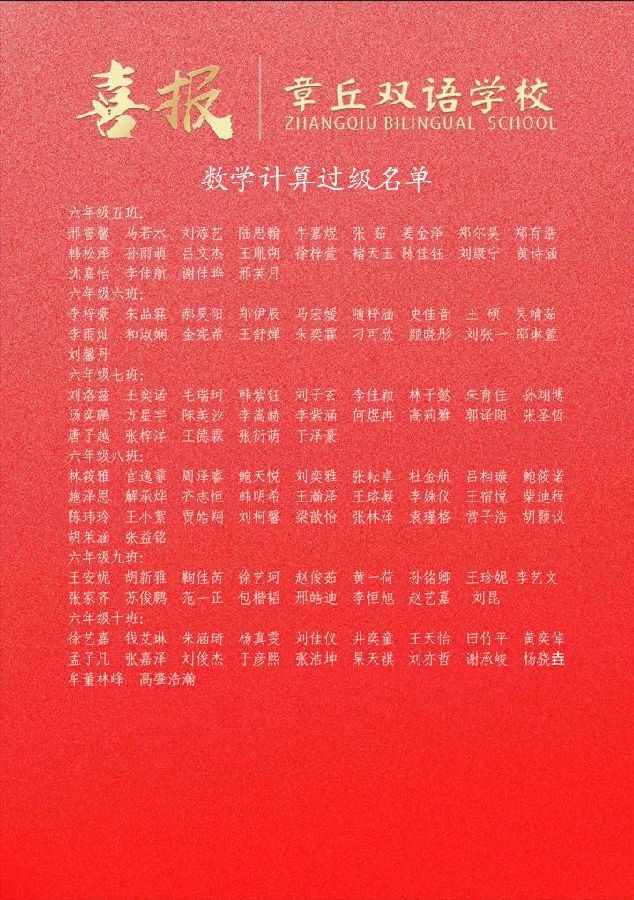 喜报
章丘双语学校
ZHANGQIU BILINGUAL SCHOOL
数学计算过级名单
六年级五班:
邢誉馨 马若水 刘添艺 陆思翰 牛嘉煜 张 茹 姜金泽 郑尔昊 郑育浩
韩松泽 孙雨萌 吕文杰 王胤朔 徐梓萱 褚天玉 陈佳钰 刘康宁 黄诗涵
沈嘉怡 李佳航 谢佳骅 邢芙月
六年级六班:
李梓豪 朱品霖 郝昊阳 郑伊辰 马宏媛 随梓涵 史佳音 王 硕 吴靖茹
李雨灿 和淑娴 金宪希 王舒婵 朱奕霖 刁可欣 颜晓彤 刘张一 邵琳萱
刘馨丹
六年级七班:
刘洛兹 王奕诺 毛瑞珂 韩紫钰 刘子玄 李佳颖 林子懿 朱育佳 孙翊博
汤奕鹏 方星宇 陈美汐 李嵩赫 李紫涵 何煜冉 高莉雅 郭译阳 张圣哲
唐子越 张梓洋 王德霖 张衍萌 于泽豪
六年级八班:
林筱雅 官逸霏 周泽睿 鲍天悦 刘奕雅 张耘卓 杜金航 吕相璇 鲍筱诺
施泽恩 解承烨 齐志恒 韩明希 王瀚泽 王珞凝 李姝仪 王宿悦 柴迪程
陈玮玲 王小絮 贾皓翔 刘柯馨 梁歆怡 张林泽 袁瑾格 常子浩 胡颢议
胡茉涵 张益铭
六年级九班:
王安妮 胡新雅 鞠佳芮 徐艺珂 赵俊茹 黄一荷 孙铭卿 王珍妮 李艺文
张家齐 苏俊鹏 范一正 包楷韬 邢皓迪 李恒旭 赵艺嘉 刘昆
六年级十班:
徐艺嘉 钱艾琳 朱涵琦 杨真雯 刘佳仪 井奕童 王天怡 曰竹平 黄奕绰
孟子凡 张嘉泽 刘俊杰 于彦熙 张浩坤 杲天祺 刘亦哲 谢承峻 杨骁垚
牟董林峰 高肇浩瀚